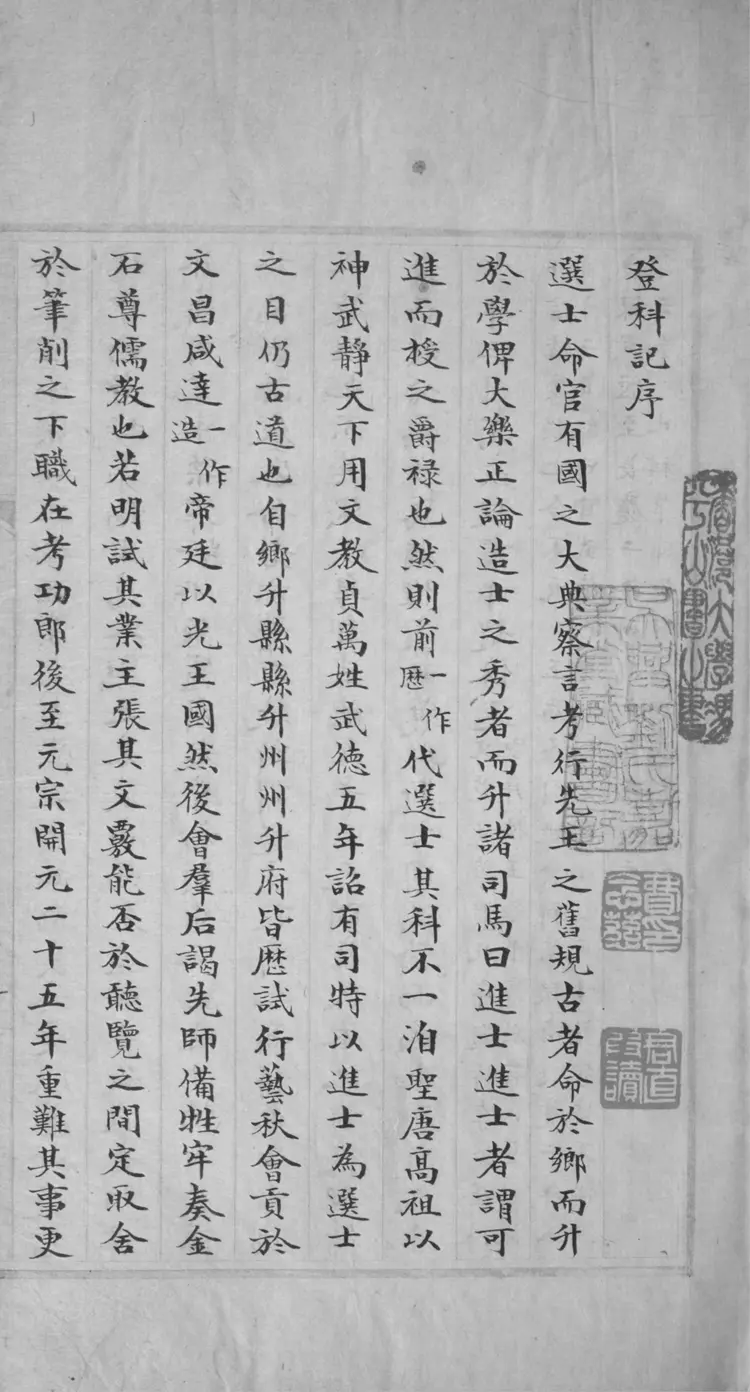 登科記序
選士命官有國之大典察言考行先王之舊規古者命於鄉而升
於學俾大樂正論造士之秀者而升諸司馬曰進士進士者謂可
進而授之爵祿也然則前一作歷代選士其科不一洎聖唐高祖以
神武靜天下用文教貞萬姓武德五年詔有司特以進士為選士
之目仍古道也自鄉升縣縣升州州升府皆歷試行藝秋會貢於
文昌咸達一作造帝廷以光王國然後會羣后謁先師備牲牢奏金
石尊儒教也若明試其業主張其文覈能否於聽覽之間定取舍
於筆削之下職在考功郎後至元宗開元二十五年重難其事更